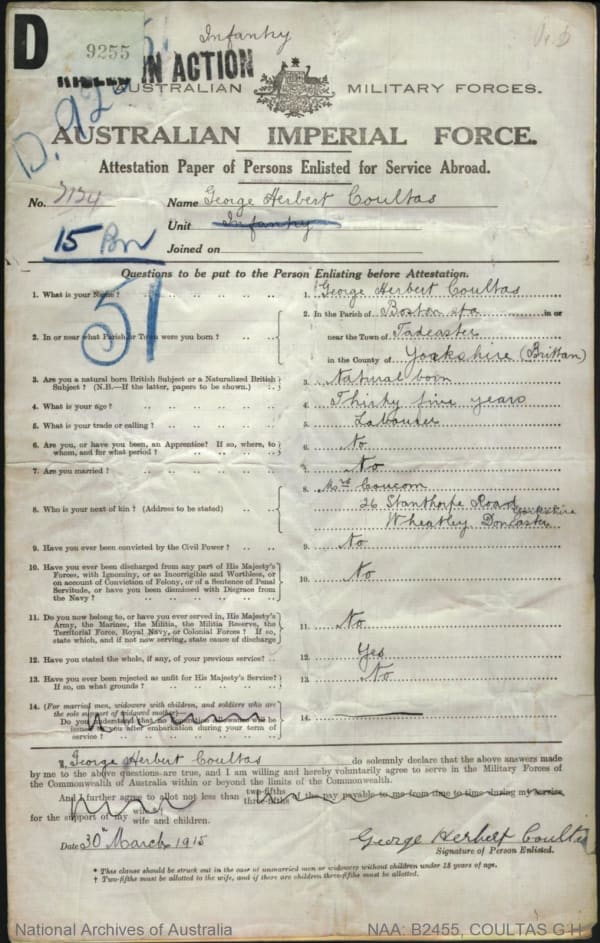 D
9255
Infantry
KILLED IN ACTION
AUSTRALIAN MILITARY FORCES.
AUSTRALIAN IMPERIAL FORCE.
Attestation Paper of Persons Enlisted for Service Abroad.
No. Name George Herbert Coultas
Unit Infantry
15 Bn
Joined on
Questions to be put to the Person Enlisting before Attestation.
51
1. What is your Name? 1. George Herbert Coultas
2. In or near what Parish or Town were you born? 2. In the Parish of Boston Spa in or
near the Town of Tadcaster
in the County of Yoakshire (Brittan)
3. Are you a natural born British Subject or a Naturalized British
Subject? (N.B.—If the latter, papers to be shown.) 3. Natural born
4. What is your age? 4. Thirty five years
5. What is your trade or calling? 5. Labourer
6. Are you, or have you been, an Apprentice? If so, where, to
whom, and for what period? 6. No
7. Are you married? 7. No
8. Who is your next of kin? (Address to be stated) 8. Mrs
26 Stanthorpe Road
Wheatley Doncaster
9. Have you ever been convicted by the Civil Power? 9. No
10. Have you ever been discharged from any part of His Majesty's
Forces, with Ignominy, or as Incorrigible and Worthless, or
on account of Conviction of Felony, or of a Sentence of Penal
Servitude, or have you been dismissed with Disgrace from
the Navy? 10. No
11. Do you now belong to, or have you ever served in, His Majesty's
Army, the Marines, the Militia, the Militia Reserve, the
Territorial Force, Royal Navy, or Colonial Forces? If so,
state which, and if not now serving, state cause of discharge 11. No
12. Have you stated the whole, if any, of your previous service? 12. Yes
13. Have you ever been rejected as unfit for His Majesty's Service?
If so, on what grounds? 13. No
14. (For married men, widowers with children, and soldiers who are
the sole support of widowed mother)—
Do you understand that no separation allowance will be
issued to you after embarkation during your term of
service? 14. —
I, George Herbert Coultas do solemnly declare that the above answers made
by me to the above questions are true, and I am willing and hereby voluntarily agree to serve in the Military Forces of
the Commonwealth of Australia within or beyond the limits of the Commonwealth.
And I further agree to allot not less than two-fifths three-fifths of the pay payable to me from time to time during my service,
for the support of my wife wife and children.
Date 30th March 1915
George Herbert Coultas
Signature of Person Enlisted.
* This clause should be struck out in the case of unmarried men or widowers without children under 18 years of age.
† Two-fifths must be allotted to the wife, and if there are children three-fifths must be allotted.
National Archives of Australia
NAA: B2455, COULTAS G H